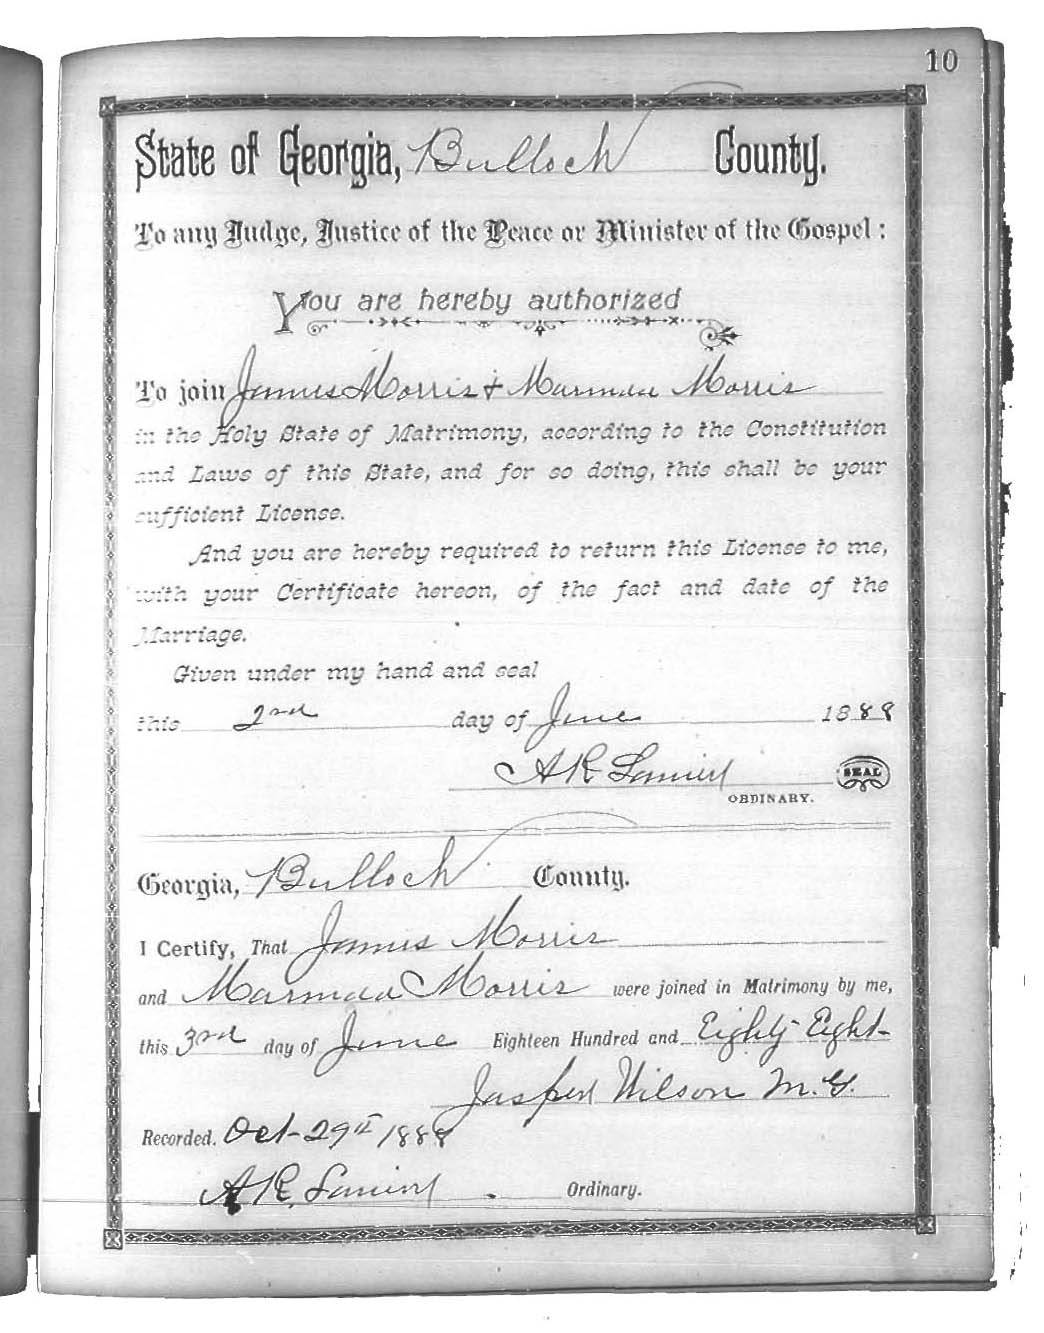 10
State of Georgia, Bulloch County.
To any Judge, Justice of the Peace or Minister of the Gospel:
You are hereby authorized
To join James Morris & Marmau Morris
in the Holy State of Matrimony, according to the Constitution
and Laws of this State, and for so doing, this shall be your
sufficient License.
And you are hereby required to return this License to me,
with your Certificate hereon, of the fact and date of the
Marriage.
Given under my hand and seal
this 2nd day of June 1888
A R Lanier SEAL
ORDINARY.
Georgia, Bulloch County.
I Certify, That James Morris
and Marmau Morris were joined in Matrimony by me,
this 3rd day of June Eighteen Hundred and Eighty Eight
Jasper Wilson M.G.
Recorded. Oct 29th 1888
A R. Lanier Ordinary.